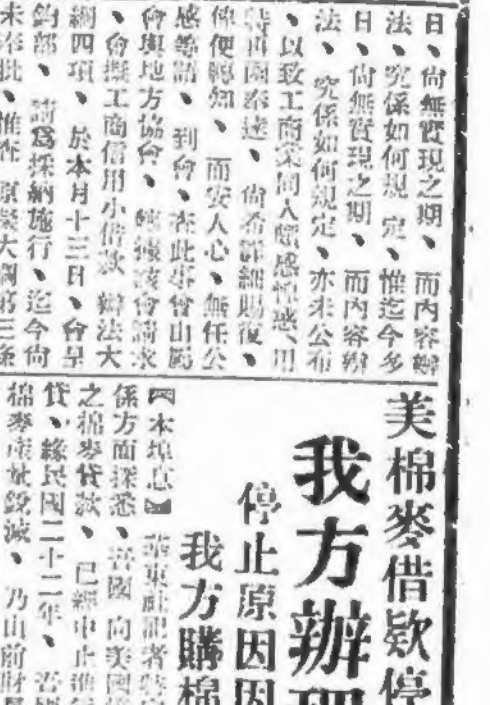 日、尙無實現之期、而內容辦
法、究係如何規定、惟迄今多
日、尙無實現之期、而內容辦
法、究係如何規定、亦未公布
、以致工商業同人頗感惶惑、用
特再函奉達、尙希詳細賜復、
俾便轉知、而安人心、無任公
感等語、到會、查此事曾由
會與地方協會、該會請求
、會擬工商信用小借款辦法大
綱四項、於本月十三日、會呈
鈞部、請爲採納施行、迄今尙
未奉批、惟查原案大綱第三條
美棉麥借欵停
我方辦理
停止原因因
我方購棉
【本埠息】華東社記者
係方面探悉、吾國向美國
之棉麥貸款、已經中止進
貸、緣民國二十二年、吾國
棉麥產量銳減、乃由前財